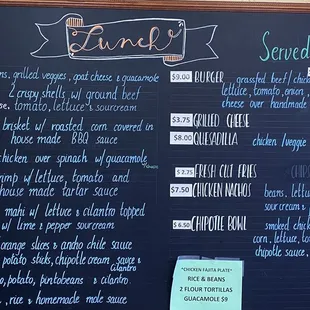 Lunch
Served
ns, grilled veggies, goat cheese & guacamole
2 crispy shells w/ ground beef
tomato, lettuce & sourcream
brisket w/ roasted corn covered in
house made BBQ sauce
chicken over spinach w/ guacamole
rimp w/ lettuce, tomato and
house made tartar sauce
mahi w/ lettuce & cilantro topped
w/ lime & pepper sourcream
orange slices & ancho chile sauce
potato stix, chipotle cream, sauce &
Cilantro
potato, pintobeans & cilantro
, rice & homemade mole sauce
$9.00 BURGER grassfed beef/chick
lettuce, tomato, onion,
cheese over handmade
$3.75 GRILLED CHEESE
$8.00 QUESADILLA chicken/veggie
$2.75 FRESH CUT FRIES CHIP
$7.50 CHICKEN NACHOS beans, lett
sour cream &
$6.50 CHIPOTLE BOWL smoked chick
corn, lettuce, to
chipotle sauce,
CHICKEN FAJITA PLATE
RICE & BEANS
2 FLOUR TORTILLAS
GUACAMOLE $9